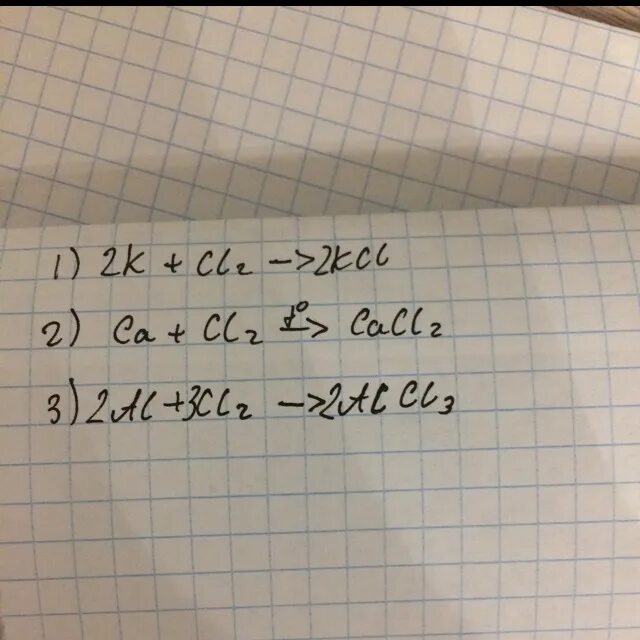 1) 2K + Cl₂ -> 2KCl
2) Ca + Cl₂ t°-> CaCl₂
3) 2Al + 3Cl₂ -> 2AlCl₃